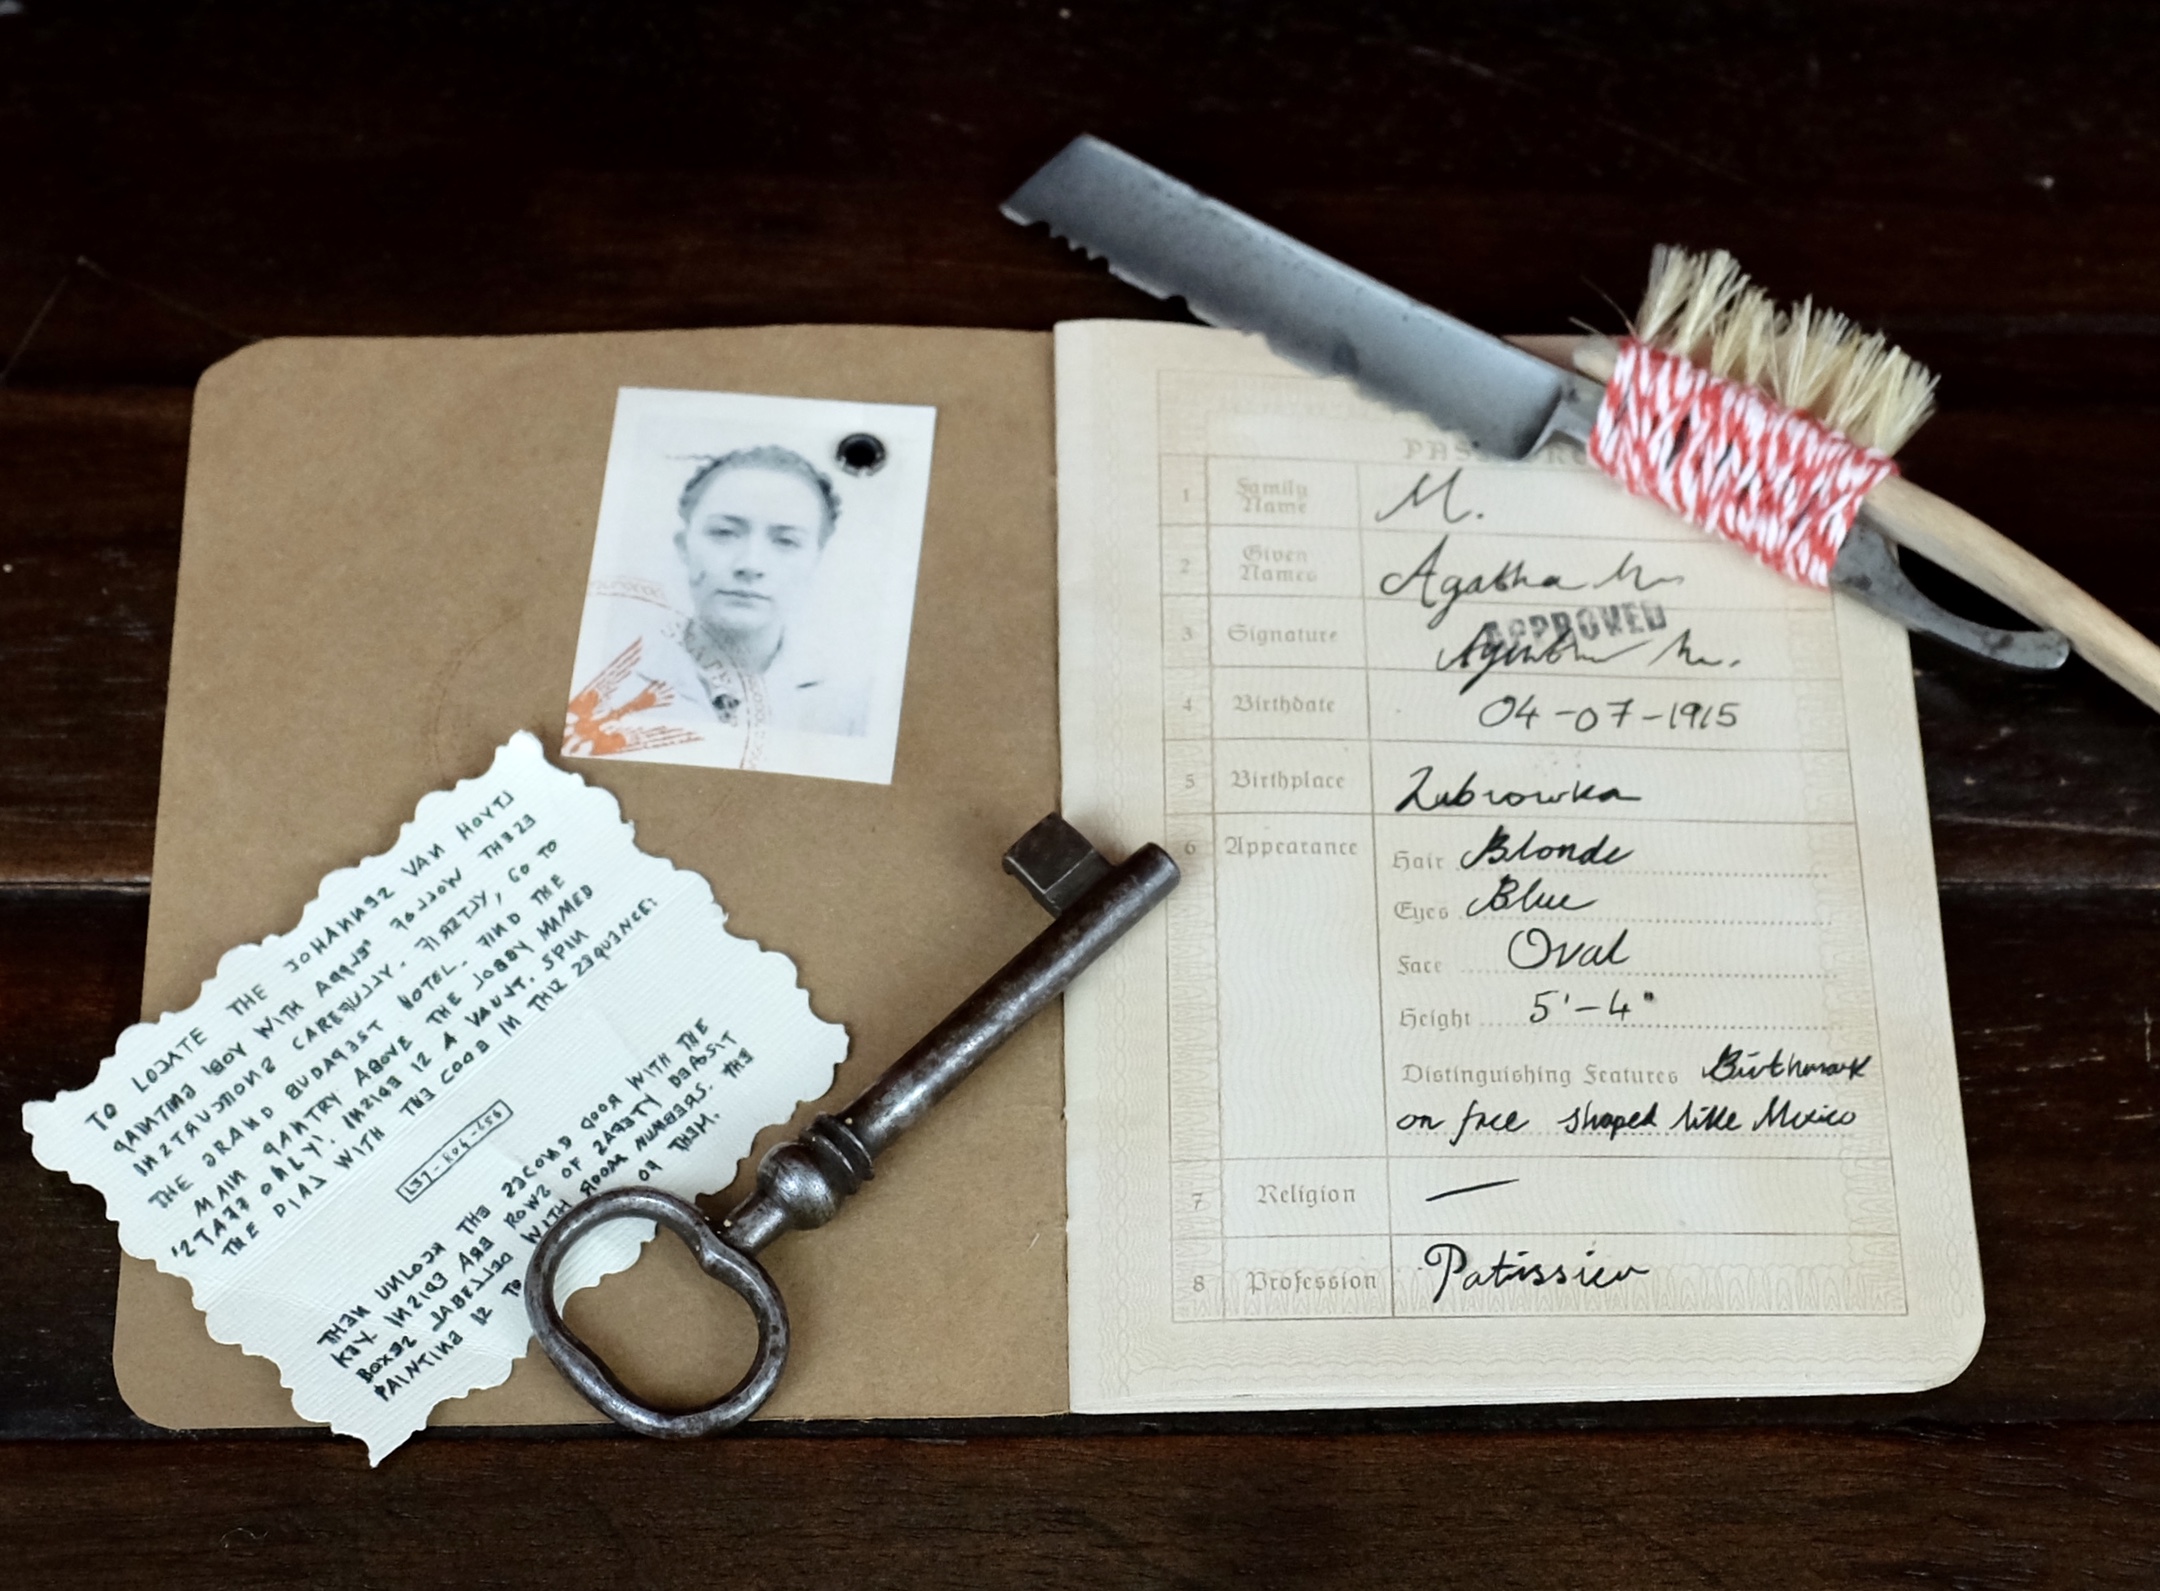 TO LOCATE THE JOHANNES VAN HOYTL
PAINTING 'BOY WITH APPLE' FOLLOW THESE
INSTRUCTIONS CAREFULLY. FIRSTLY, GO TO
THE GRAND BUDAPEST HOTEL. FIND THE
MAIN PANTRY ABOVE THE LOBBY NAMED
'STAFF ONLY'. INSIDE IS A VAULT. SPIN
THE DIAL WITH THE CODE IN THIS SEQUENCE:
THEN UNLOCK THE SECOND DOOR WITH THE
KEY. INSIDE ARE ROWS OF SAFETY DEPOSIT
BOXES LABELLED WITH ROOM NUMBERS. THE
PAINTING IS TO OF THEM.
1 Family Name M.
2 Given Names Agatha
APPROVED
3 Signature
4 Birthdate 04-07-1915
5 Birthplace Zubrowka
6 Appearance Hair Blonde
Eyes Blue
Face Oval
Height 5'-4"
Distinguishing Features Birthmark
on face shaped like Mexico
7 Religion —
8 Profession Patissier